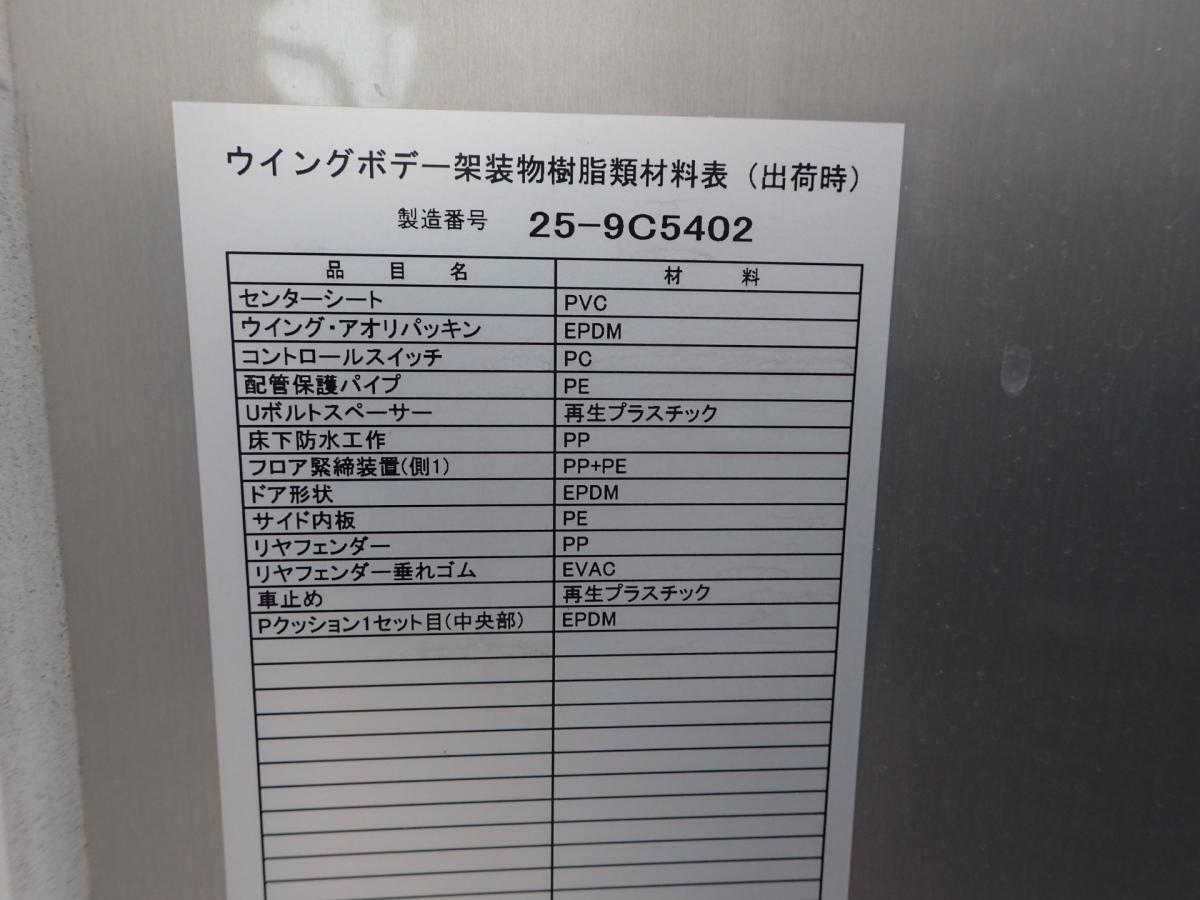 ウイングボデー架装物樹脂類材料表（出荷時）
製造番号 25-9C5402
品目名 材料
センターシート PVC
ウイング・アオリパッキン EPDM
コントロールスイッチ PC
配管保護パイプ PE
Uボルトスペーサー 再生プラスチック
床下防水工作 PP
フロア緊締装置(側1) PP+PE
ドア形状 EPDM
サイド内板 PE
リヤフェンダー PP
リヤフェンダー垂れゴム EVAC
車止め 再生プラスチック
Pクッション1セット目(中央部) EPDM